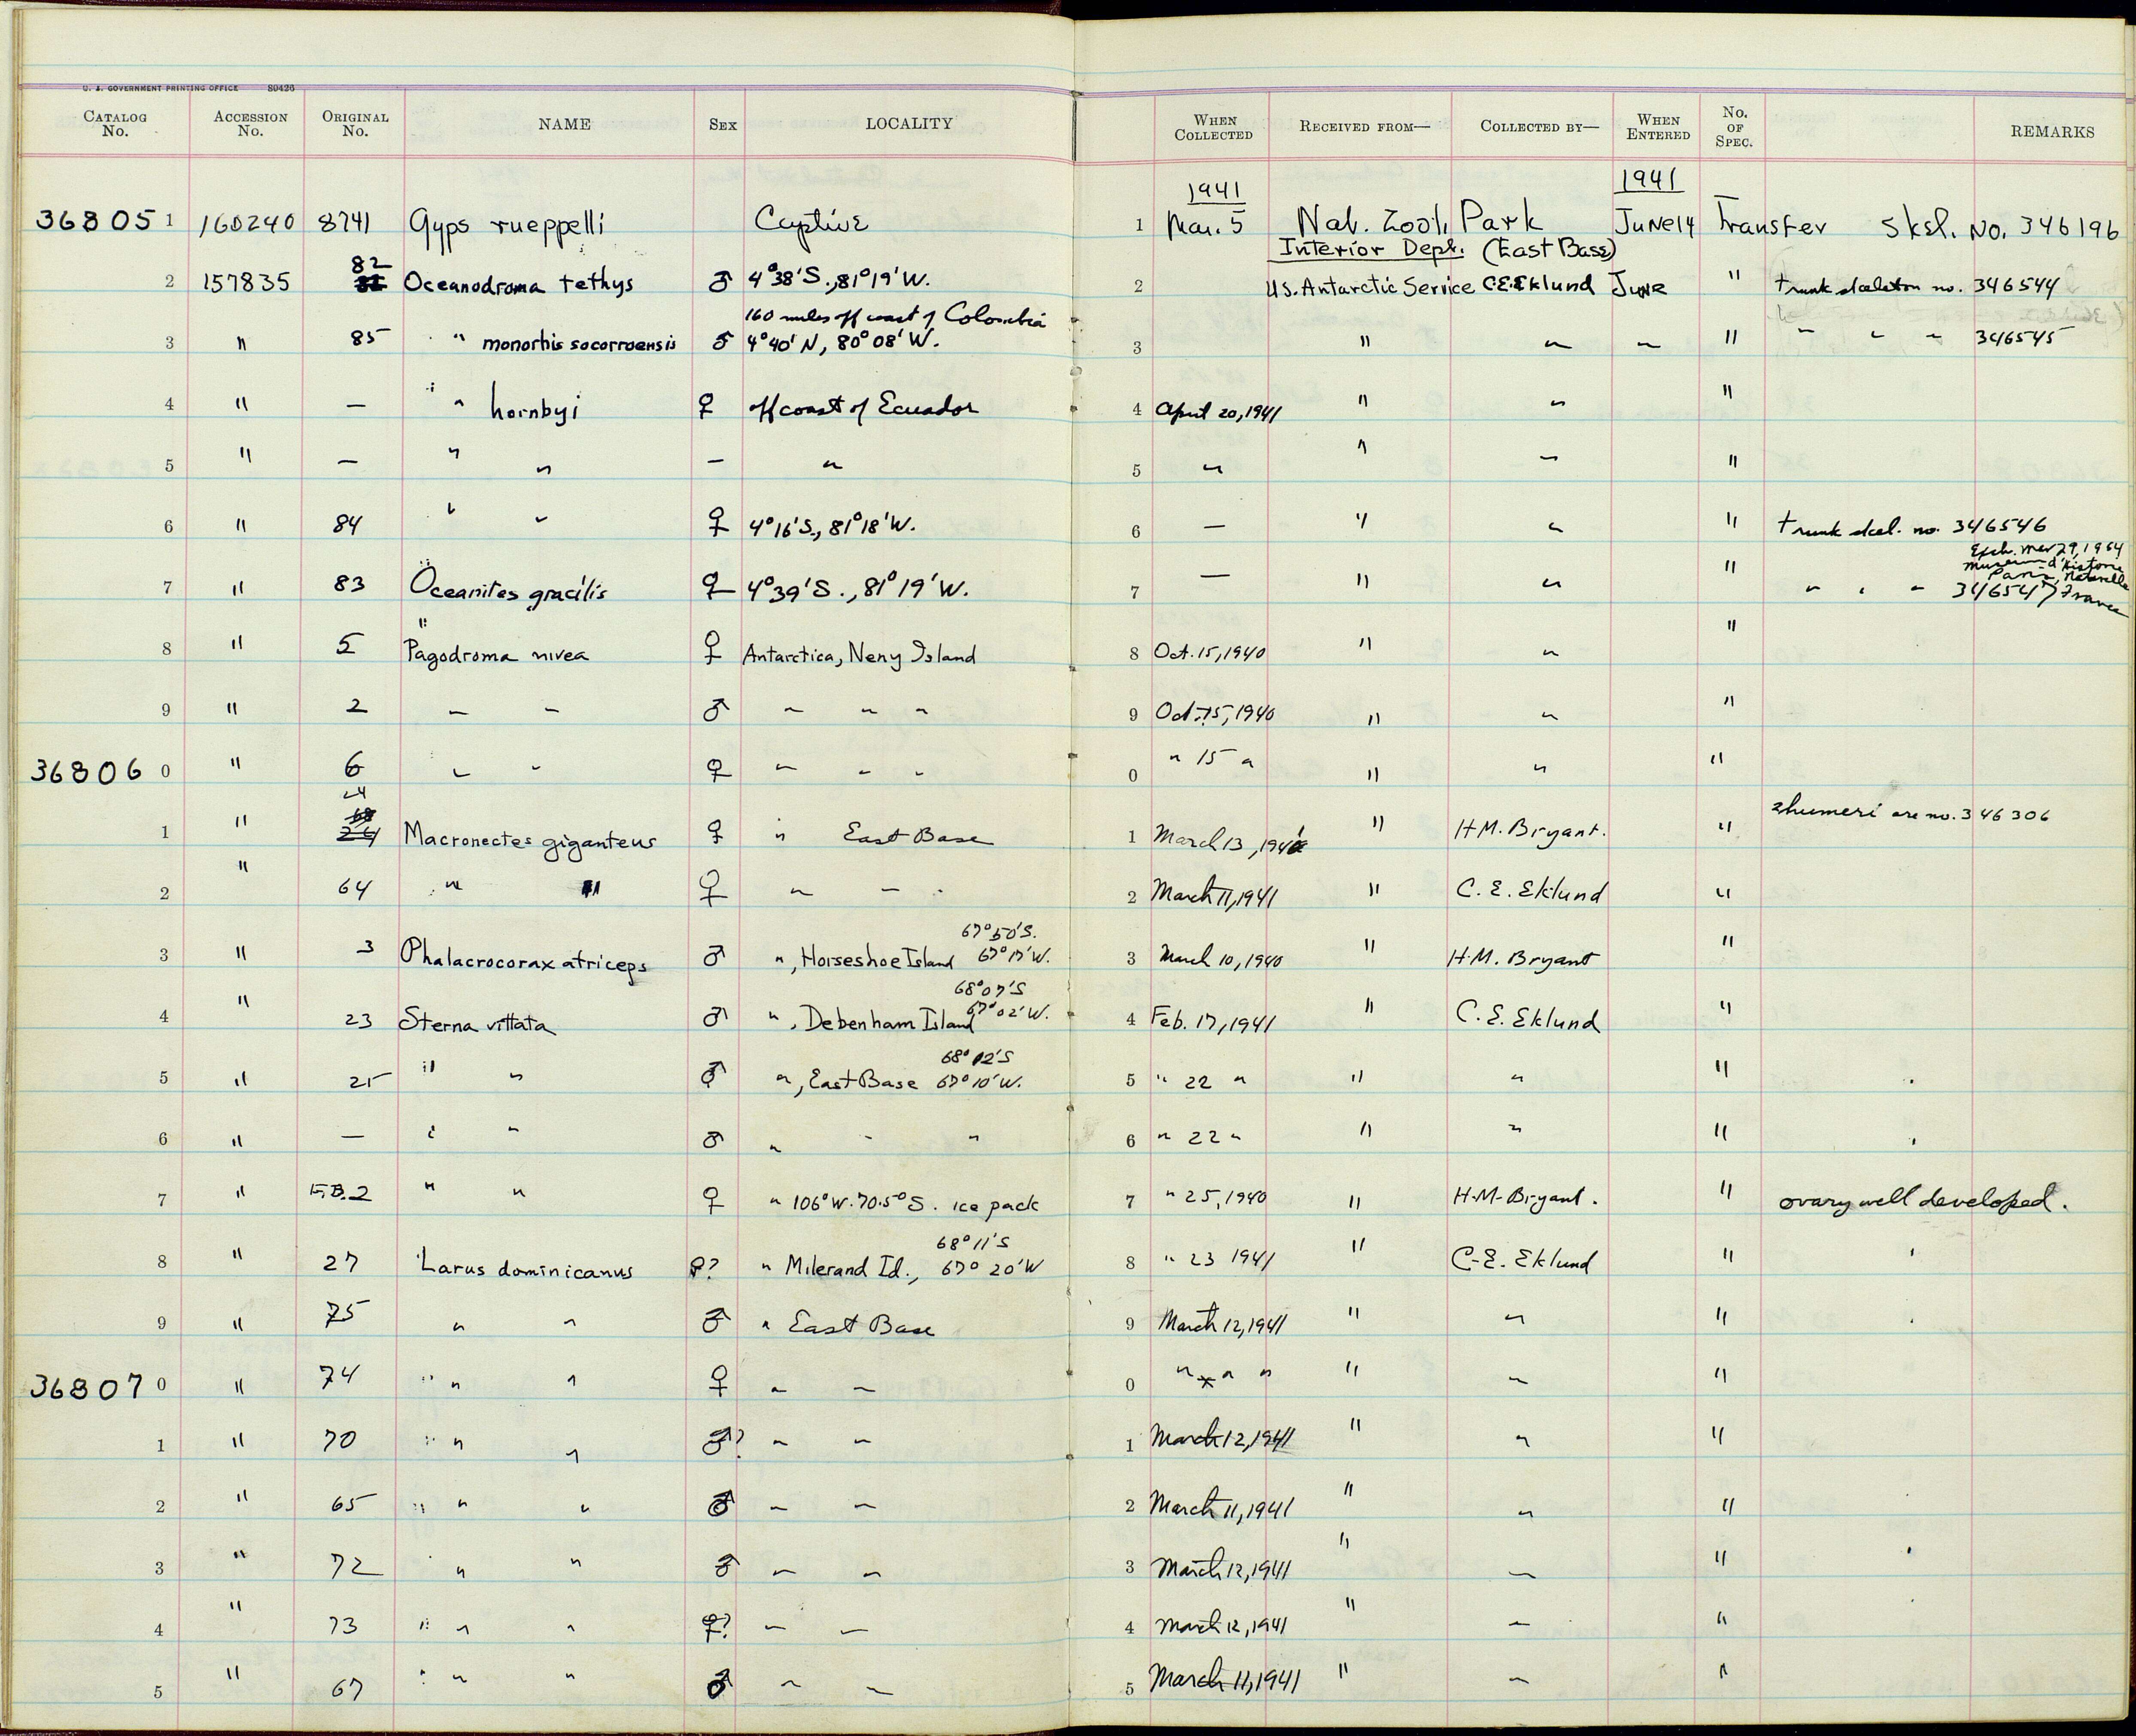 U. S. GOVERNMENT PRINTING OFFICE 80426
CATALOG No. ACCESSION No. ORIGINAL No. NAME SEX LOCALITY WHEN COLLECTED RECEIVED FROM— COLLECTED BY— WHEN ENTERED No. OF SPEC. REMARKS
1941 1941
36805 1 160240 8741 Gyps rueppelli Captive 1 Mar. 5 Nat. Zool. Park June 14 Transfer Skel. No. 346196
Interior Dept. (East Base)
82
2 157835 Oceanodroma tethys ♂ 4°38'S., 81°19'W. 2 U.S. Antarctic Service C.E. Eklund June " trunk skeleton no. 346544
160 miles off coast of Colombia
3 " 85 " monorhis socorroensis ♂ 4°40'N, 80°08'W. 3 " " " " " " " 346545
4 " — " " hornbyi ♀ off coast of Ecuador 4 April 20, 1941 " " "
5 " — " " — " 5 " " " "
6 " 84 " " ♀ 4°16'S., 81°18'W. 6 — " " " trunk skel. no. 346546
Exch. Mar 29, 1964
Museum d'Histoire
Paris, Naturelle
7 " 83 Oceanites gracilis ♀ 4°39'S., 81°19'W. 7 — " " " " " " 346547 France
8 " 5 Pagodroma nivea ♀ Antarctica, Neny Island 8 Oct. 15, 1940 " " "
9 " 2 " " ♂ " " " 9 Oct. 15, 1940 " " "
36806 0 " 6 " " ♀ " " " 0 " 15 " " " "
24
68
1 " 24 Macronectes giganteus ♀ " East Base 1 March 13, 1941 " H.M. Bryant. " 2 humeri are no. 346306
2 " 64 " " ♀ " " " 2 March 11, 1941 " C. E. Eklund "
67°50'S.
3 " 3 Phalacrocorax atriceps ♂ ", Horseshoe Island 67°17'W. 3 March 10, 1940 " H.M. Bryant "
68°07'S
4 " 23 Sterna vittata ♂ ", Debenham Island 67°02'W. 4 Feb. 17, 1941 " C. E. Eklund "
68°12'S
5 " 25 " " ♂ ", East Base 67°10'W. 5 " 22 " " " "
6 " — " " ♂ " " " 6 " 22 " " " "
7 " E.B.2 " " ♀ " 106°W. 70.5°S. ice pack 7 " 25, 1940 " H.M. Bryant. " ovary well developed.
68°11'S
8 " 27 Larus dominicanus ♀? " Milerand Id., 67° 20'W 8 " 23 1941 " C. E. Eklund "
9 " 75 " " ♂ " East Base 9 March 12, 1941 " " "
36807 0 " 74 " " ♀ " " 0 " " " " " "
1 " 70 " " ♂? " " 1 March 12, 1941 " " "
2 " 65 " " ♂ " " 2 March 11, 1941 " " "
3 " 72 " " ♂ " " 3 March 12, 1941 " " "
4 " 73 " " ♀? " " 4 March 12, 1941 " " "
5 " 67 " " ♂ " " 5 March 11, 1941 " " "